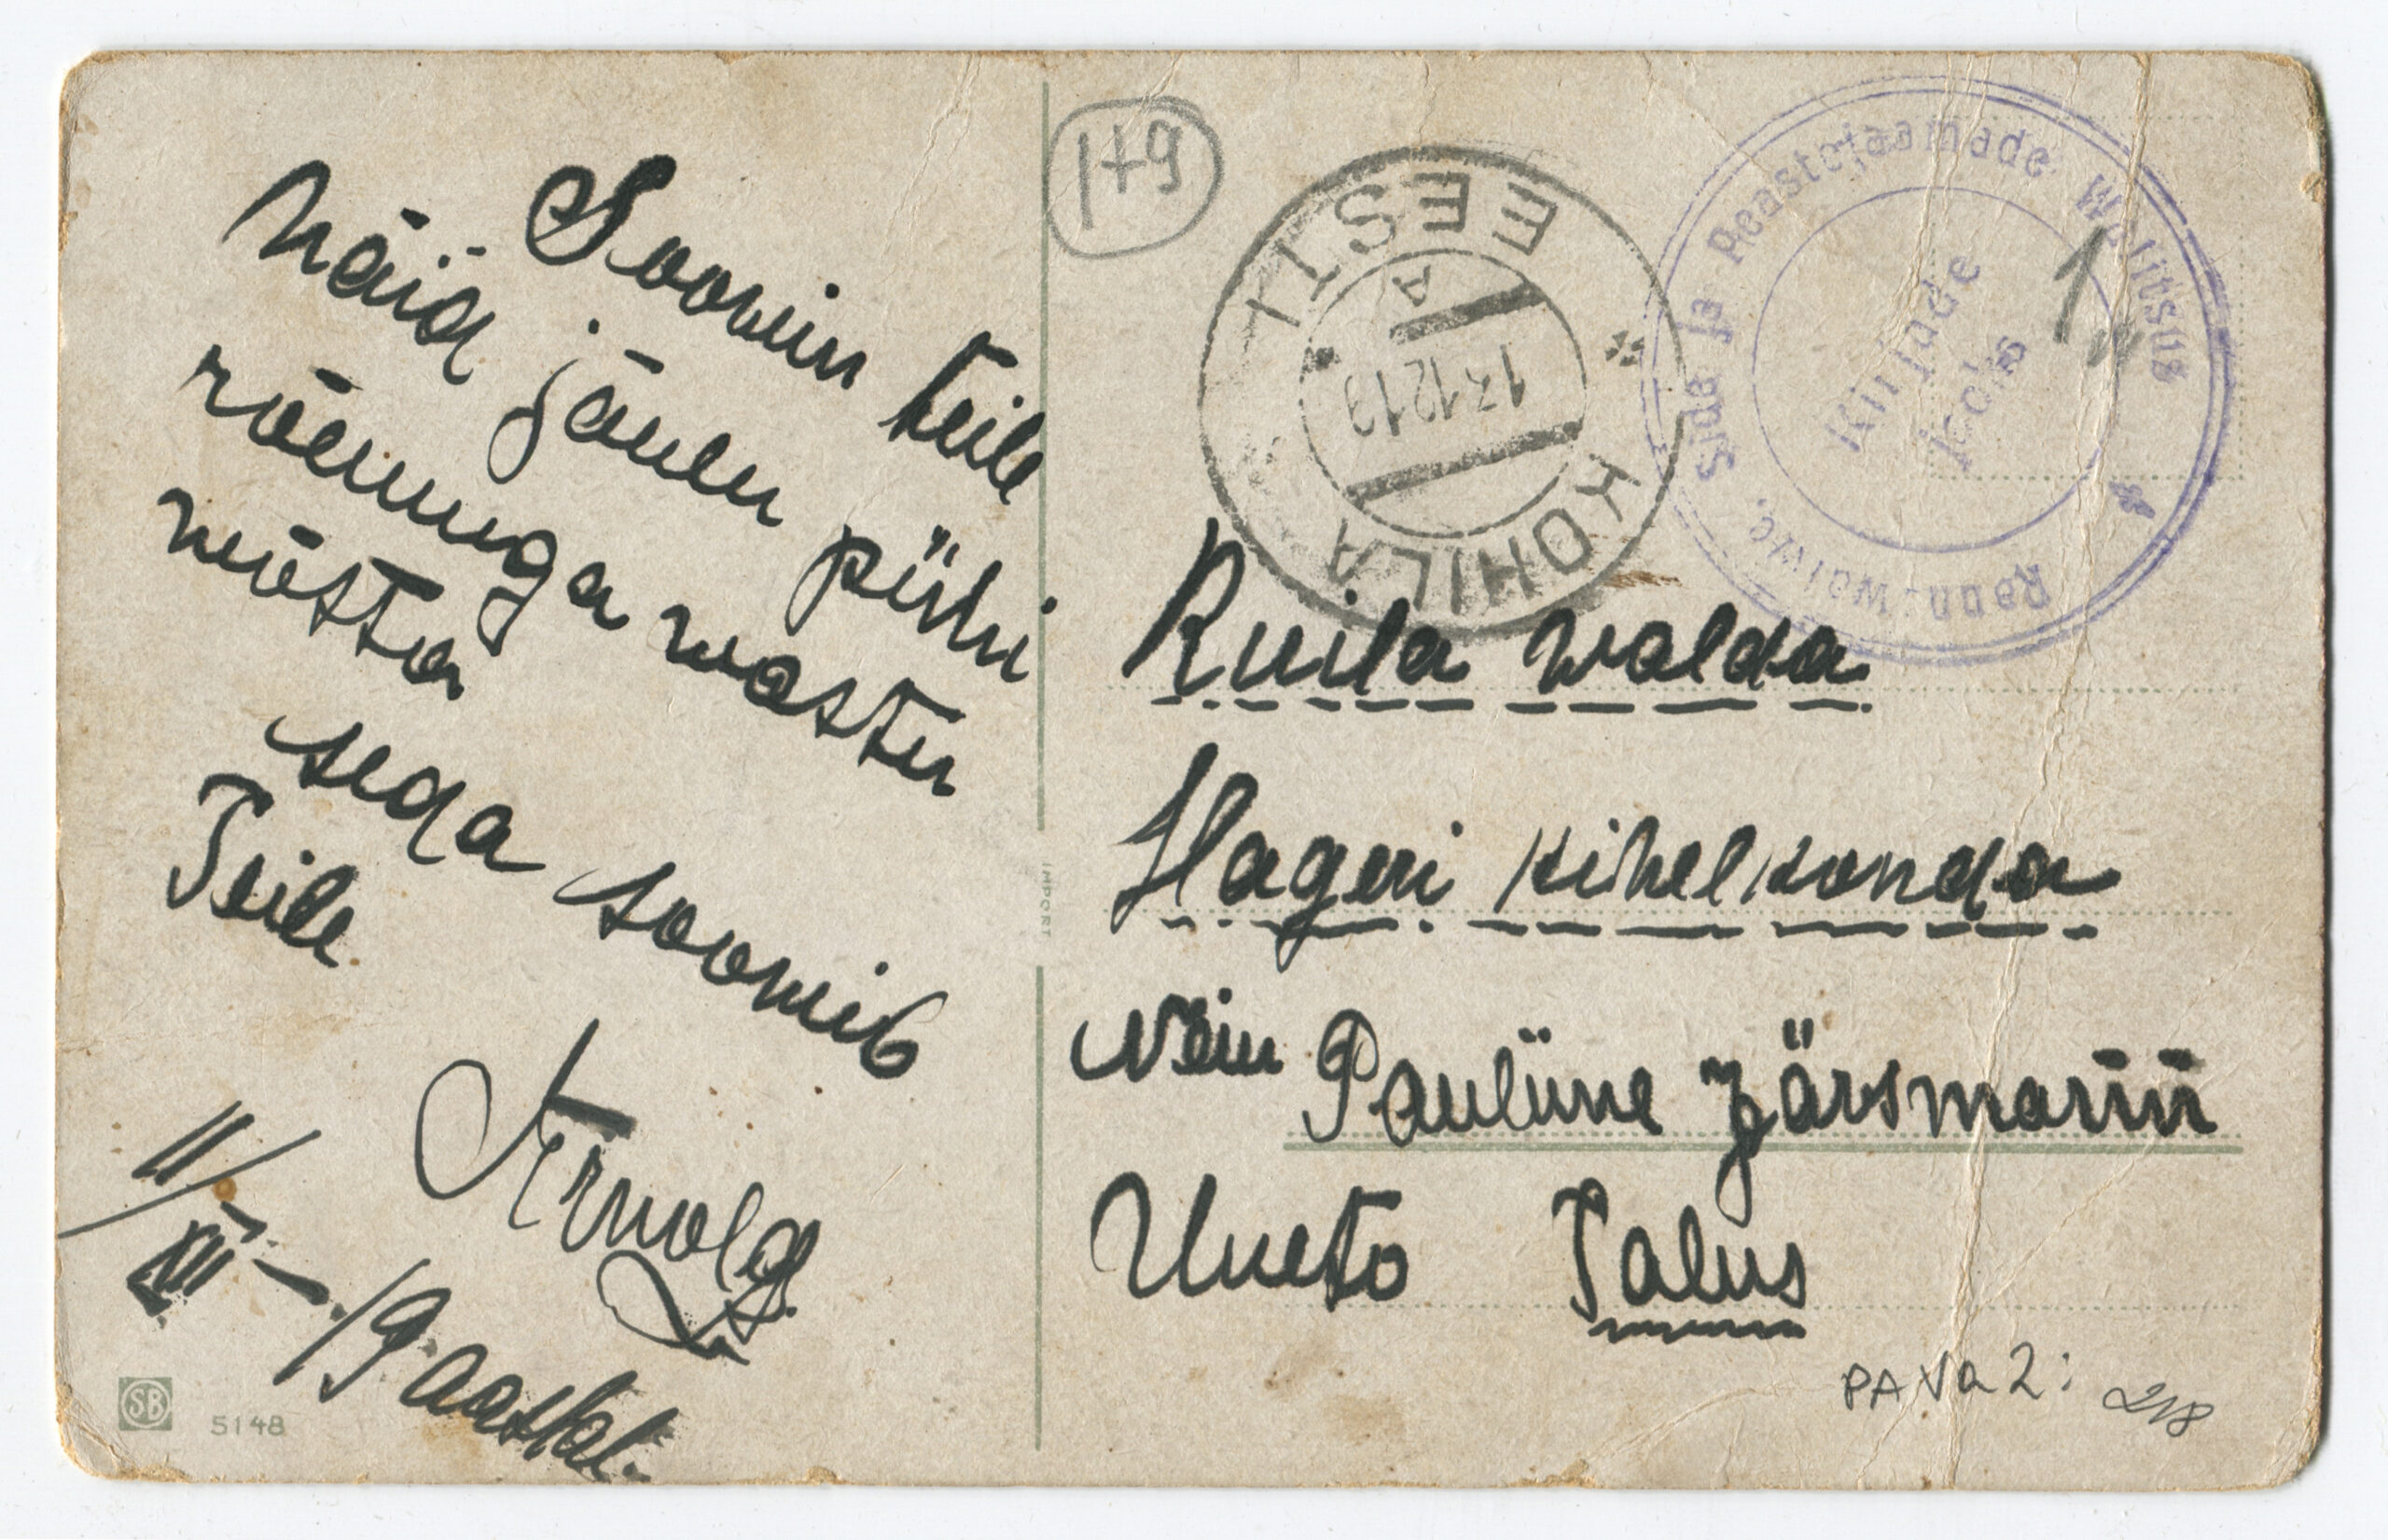 Soovin teile
Näid jõulu pühi
rõemuga wastu
wõsta
seda soowib
Teile
Arnold
11/XII - 19 aastal.
SB 5148
IMPORT
1+9
EESTI
A
13.12.19
KOHILA
Side ja Peastejaamade Walitsus
Rannawalwe.
Kirjade
jaoks
1
Ruila walda
Hageri kihelkonda
Pauliine Järsmann
Uueto Talus
PAVa2: 218